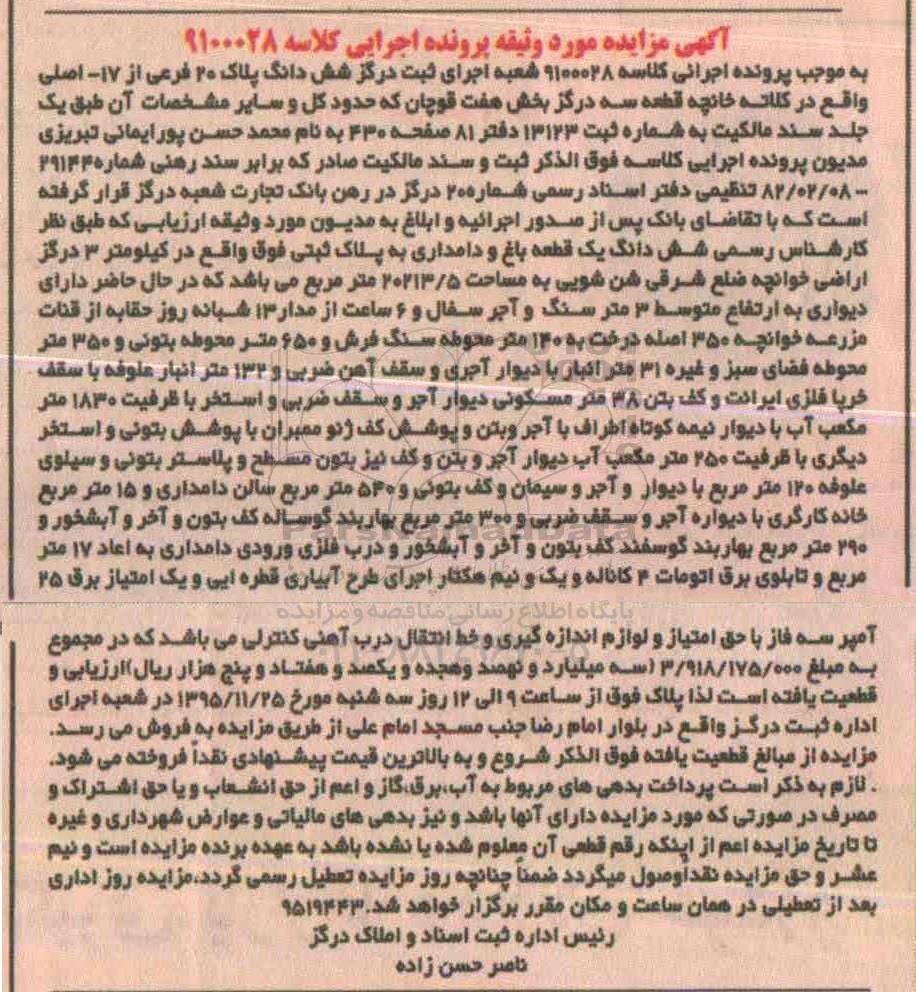 آگهی مزایده مورد وثیقه پرونده اجرایی کلاسه ۹۱۰۰۰۲۸
به موجب پرونده اجرائی کلاسه ۹۱۰۰۰۲۸ شعبه اجرای ثبت درگز شش دانگ پلاک ۲۰ فرعی از ۱۷- اصلی
واقع در کلاته خانچه قطعه سه درگز بخش هفت قوچان که حدود کل و سایر مشخصات آن طبق یک
جلد سند مالکیت به شماره ثبت ۱۳۱۲۳ دفتر ۸۱ صفحه ۴۳۰ به نام محمد حسن پورایمانی تبریزی
مدیون پرونده اجرایی کلاسه فوق الذکر ثبت و سند مالکیت صادر که برابر سند رهنی شماره ۲۹۱۴۴
- ۸۲/۰۲/۰۸ تنظیمی دفتر اسناد رسمی شماره ۲۰۰ درگز در رهن بانک تجارت شعبه درگز قرار گرفته
است که با تقاضای بانک پس از صدور اجرائیه و ابلاغ به مدیون مورد وثیقه ارزیابی که طبق نظر
کارشناس رسمی شش دانگ یک قطعه باغ و دامداری به پلاک ثبتی فوق واقع در کیلومتر ۳ درگز
اراضی خوانچه ضلع شرقی شن شویی به مساحت ۲۰۲۱۳/۵ متر مربع می باشد که در حال حاضر دارای
دیواری به ارتفاع متوسط ۳ متر سنگ و آجر سفال و ۶ ساعت از مدار ۱۳ شبانه روز حقابه از قنات
مزرعه خوانچه ۳۵۰ اصله درخت به ۱۴۰ متر محوطه سنگ فرش و ۶۵۰ متر محوطه بتونی و ۳۵۰ متر
محوطه فضای سبز و غیره ۳۱ متر انبار با دیوار آجری و سقف آهن ضربی و ۱۳۲ متر انبار علوفه با سقف
خرپا فلزی ایرانت و کف بتن ۳۸ متر مسکونی دیوار آجر و سقف ضربی و استخر با ظرفیت ۱۸۳۰ متر
مکعب آب با دیوار نیمه کوتاه اطراف با آجر وبتن و پوشش کف ژئو ممبران با پوشش بتونی و استخر
دیگری با ظرفیت ۲۵۰ متر مکعب آب دیوار آجر و بتن و کف نیز بتون مسطح و پلاستر بتونی و سیلوی
علوفه ۱۲۰ متر مربع با دیوار و آجر و سیمان و کف بتونی و ۵۴۰ متر مربع سالن دامداری و ۱۵ متر مربع
خانه کارگری با دیواره آجر و سقف ضربی و ۳۰۰ متر مربع بهاربند گوساله کف بتون و آخر و آبشخور و
۲۹۰ متر مربع بهاربند گوسفند کف بتون و آخر و آبشخور و درب فلزی ورودی دامداری به اعاد ۱۷ متر
مربع و تابلوی برق اتومات ۴ کاناله و یک و نیم هکتار اجرای طرح آبیاری قطره ایی و یک امتیاز برق ۲۵
پایگاه اطلاع رسانی مناقصه و مزایده
آمپر سه فاز با حق امتیاز و لوازم اندازه گیری و خط انتقال درب آهنی کنترلی می باشد که در مجموع
به مبلغ ۳/۹۱۸/۱۷۵/۰۰۰ (سه میلیارد و نهصد وهجده و یکصد و هفتاد و پنج هزار ریال)ارزیابی و
قطعیت یافته است لذا پلاک فوق از ساعت ۹ الی ۱۲ روز سه شنبه مورخ ۱۳۹۵/۱۱/۲۵ در شعبه اجرای
اداره ثبت درگز واقع در بلوار امام رضا جنب مسجد امام علی از طریق مزایده به فروش می رسد.
مزایده از مبالغ قطعیت یافته فوق الذکر شروع و به بالاترین قیمت پیشنهادی نقداً فروخته می شود.
. لازم به ذکر است پرداخت بدهی های مربوط به آب،برق،گاز و اعم از حق انشعاب و یا حق اشتراک و
مصرف در صورتی که مورد مزایده دارای آنها باشد و نیز بدهی های مالیاتی و عوارض شهرداری و غیره
تا تاریخ مزایده اعم از اینکه رقم قطعی آن معلوم شده یا نشده باشد به عهده برنده مزایده است و نیم
عشر و حق مزایده نقداوصول میگردد ضمناً چنانچه روز مزایده تعطیل رسمی گردد،مزایده روز اداری
بعد از تعطیلی در همان ساعت و مکان مقرر برگزار خواهد شد.۹۵۱۹۴۴۳
رئیس اداره ثبت اسناد و املاک درگز
ناصر حسن زاده